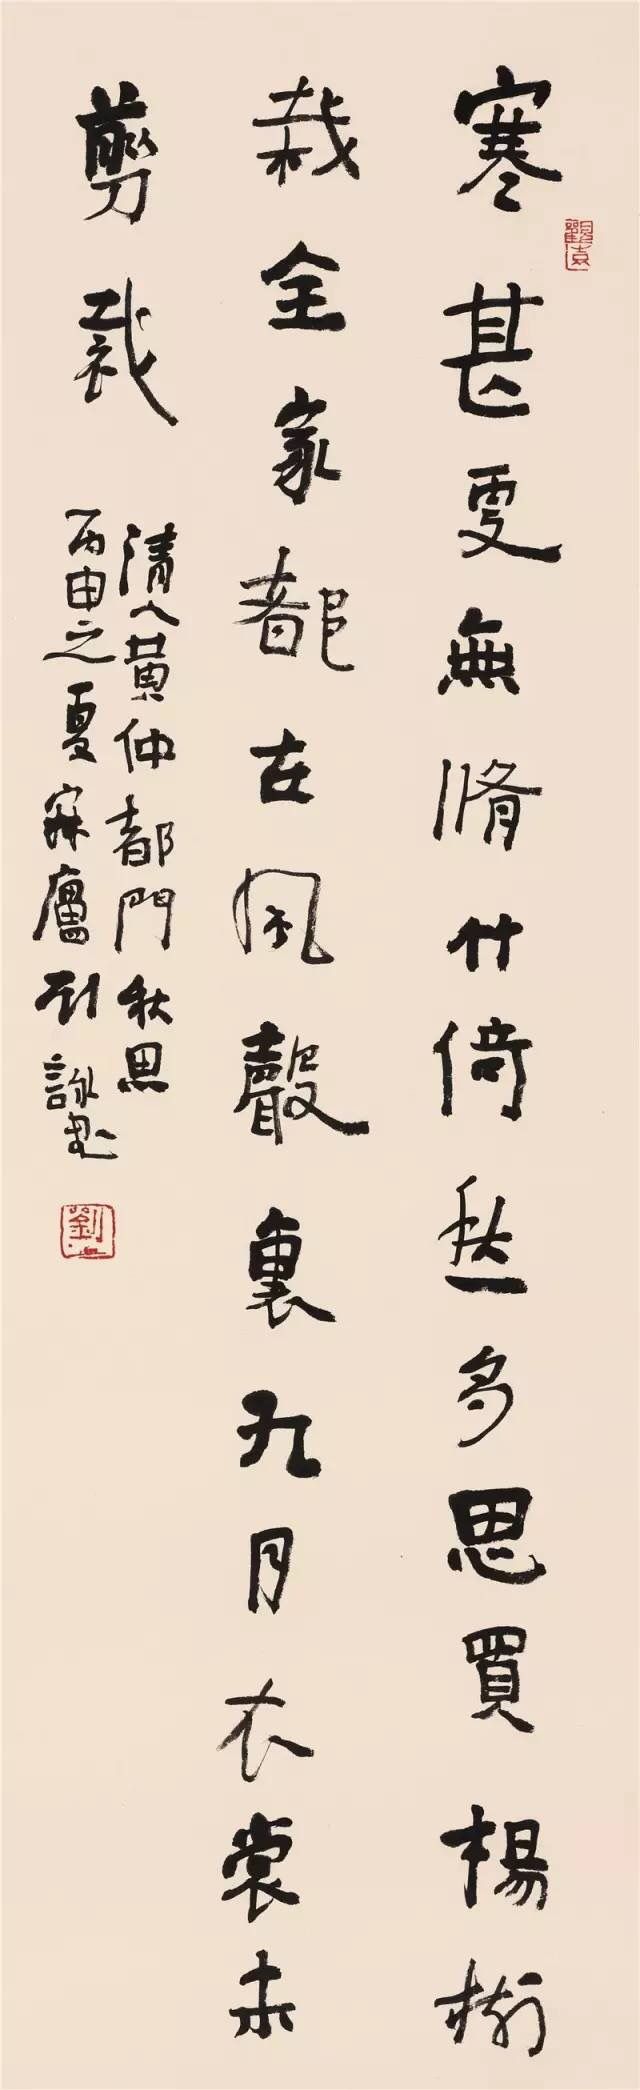 寒甚更無脩竹倚愁多思買楊
栽全家都在風聲裏九月衣裳未
剪裁
清人黄仲都門秋思
丙申之夏寐廬刘詠書
劉